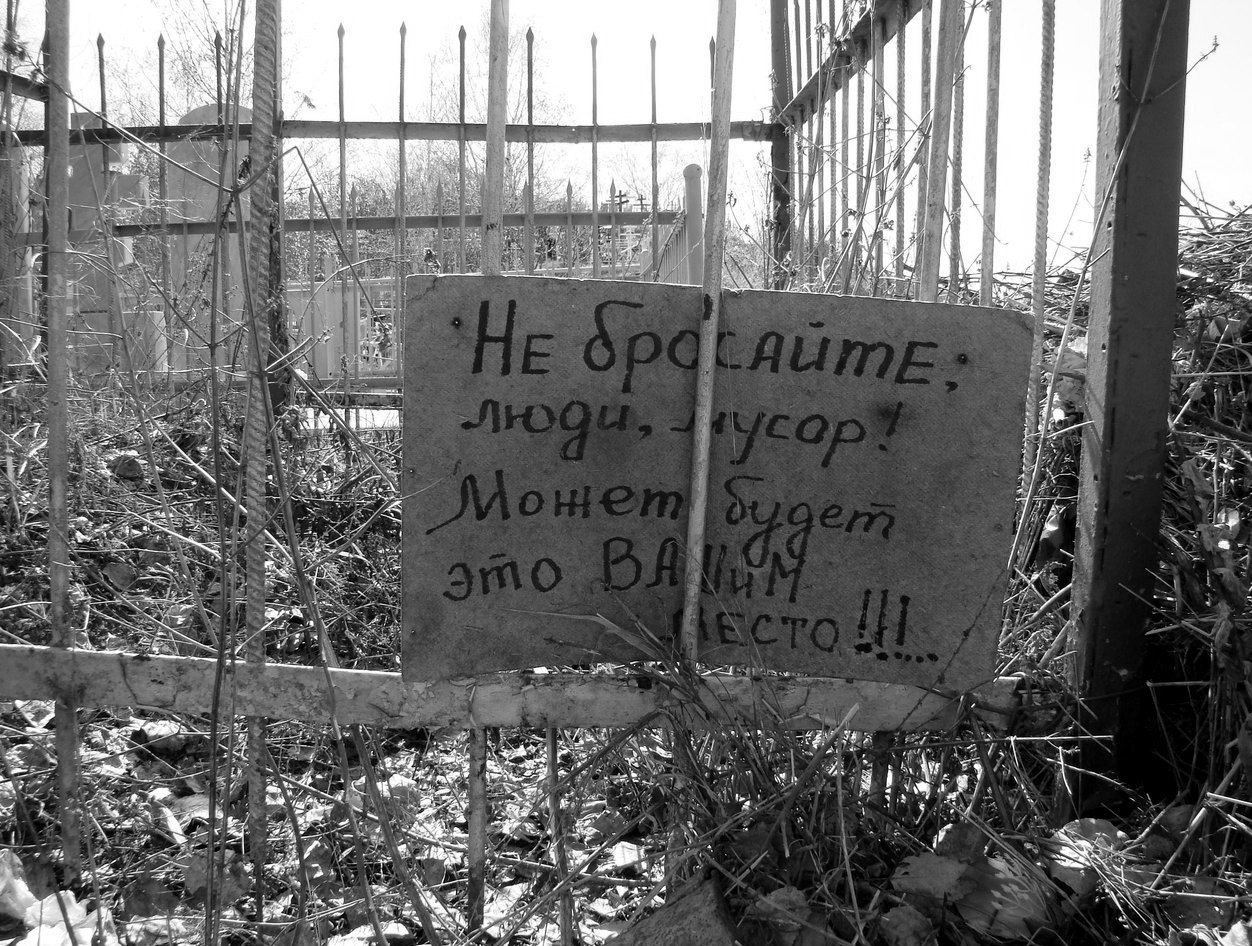 Не бросайте,
люди, мусор!
Может будет
это ВАШиМ
МЕСТО!!!...